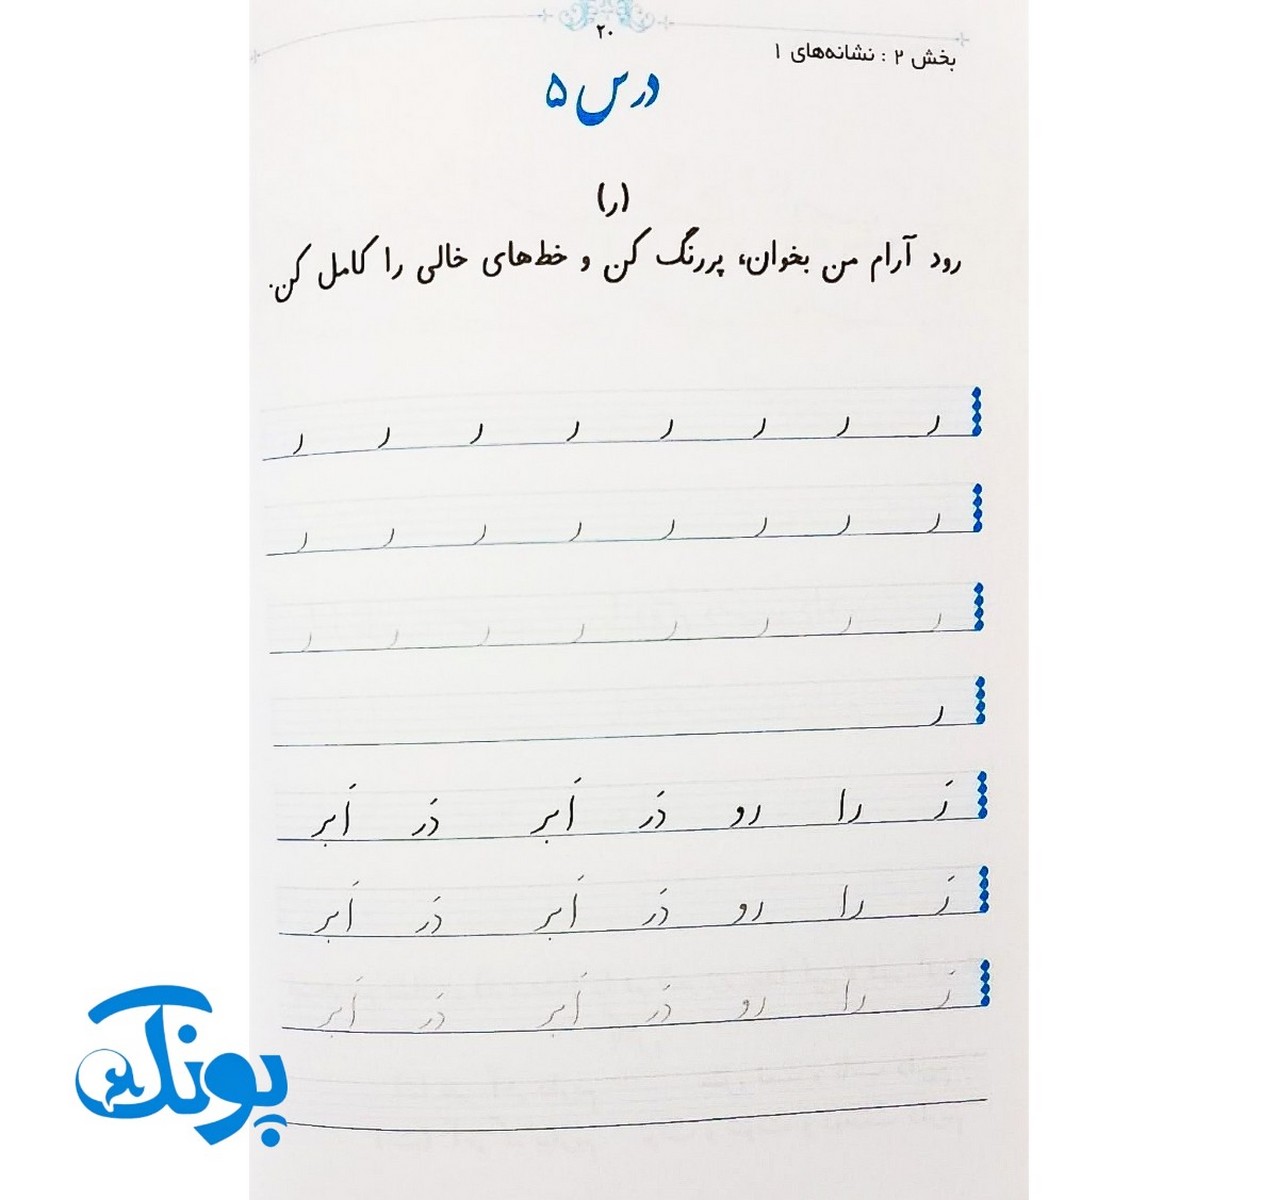 ۲۰
بخش ۲ : نشانه‌های ۱
درس ۵
(ر)
رود آرام من بخوان، پررنگ کن و خط‌های خالی را کامل کن.
ر ر ر ر ر ر ر ر
ر ر ر ر ر ر ر ر
ر ر ر ر ر ر ر ر
ر
رَ را رو دَر اَبر دَر اَبر
رَ را رو دَر اَبر دَر اَبر
رَ را رو دَر اَبر دَر اَبر
پونک